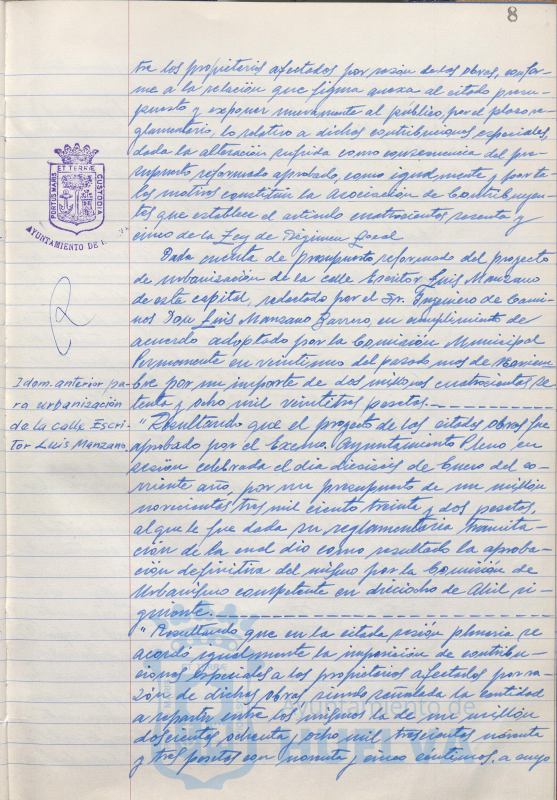 8
tre los propietarios afectados por razón de las obras, confor-
me a la relación que figura anexa al citado presu-
puesto y exponer nuevamente al público, por el plazo re-
glamentario, lo relativo a dichas contribuciones especiales,
dada la alteración sufrida como consecuencia del pre-
supuesto reformado aprobado, como igualmente y por ta-
les motivos constituir la Asociación de Contribuyen-
tes que establece el artículo cuatrocientos sesenta y
cinco de la Ley de Régimen Local.
PORTUS MARIS
ET TERRAE
CUSTODIA
AYUNTAMIENTO DE
Dada cuenta de presupuesto reformado del proyecto
de urbanización de la calle Escritor Luis Manzano
de esta capital, redactado por el Sr. Ingeniero de Cami-
nos Don Luis Manzano Barrero, en cumplimiento de
acuerdo adoptado por la Comisión Municipal
Permanente en veintiuno del pasado mes de Noviem-
Idom. anterior pa-
ra urbanización
de la calle Escri-
tor Luis Manzano.
bre por un importe de dos millones cuatrocientas se-
tenta y ocho mil veintitres pesetas.
"Resultando que el proyecto de las citadas obras fue
aprobado por el Excmo. Ayuntamiento Pleno en
sesión celebrada el día dieciséis de Enero del co-
rriente año, por un presupuesto de un millón
novecientas tres mil ciento treinta y dos pesetas,
al que le fue dada su reglamentaria tramita-
ción de la cual dio como resultado la aproba-
ción definitiva del mismo por la Comisión de
Urbanismo competente en dieciocho de Abril si-
guiente.
"Resultando que en la citada sesión plenaria se
acordó igualmente la imposición de contribu-
ciones especiales a los propietarios afectados por ra-
zón de dichas obras siendo señalada la cantidad
a repartir entre los mismos la de un millón
doscientas ochenta y ocho mil trescientas noventa
y tres pesetas con noventa y cinco centimos, a cuyo
Ayuntamiento de
HUELVA